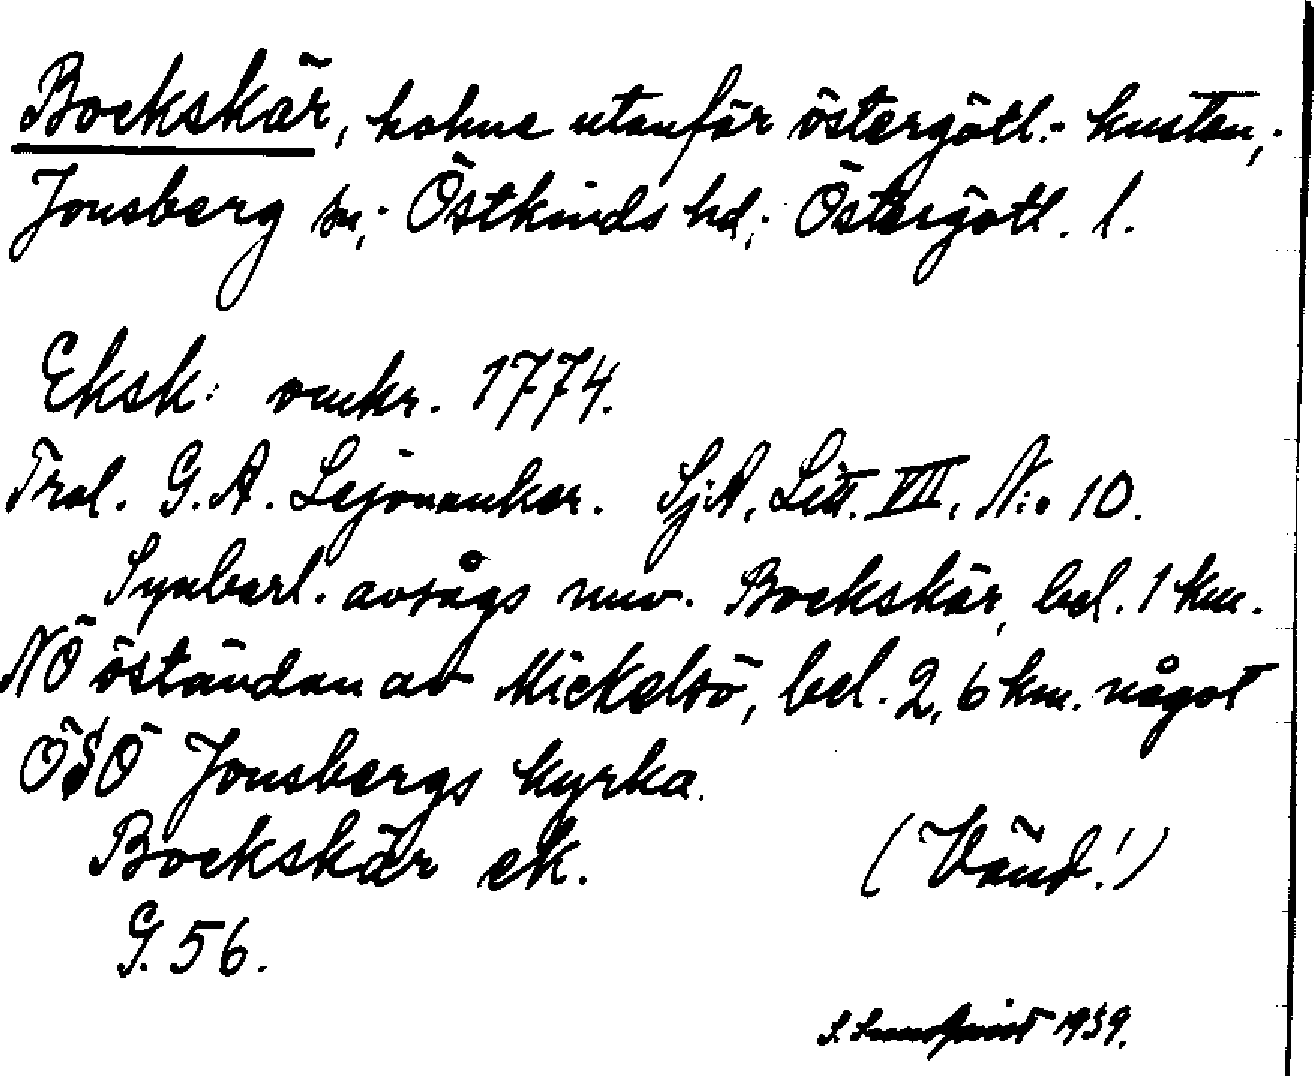 Bockskär, holme utanför östergötl.- kusten,
Jonsberg sn, Östkinds hd, Östergötl. l.
Eksk: omkr. 1774.
Trol. G. A. Lejonankar. SjA, Litt. VII, N:o 10.
Synbarl. avsågs nuv. Bockskär, bel. 1 km.
NÖ öständan av Mickelsö, bel. 2,6 km. något
ÖSÖ Jonsbergs kyrka.
Bockskär ek. (Vänd!)
G. 56.
S. Sundqvist 1939.